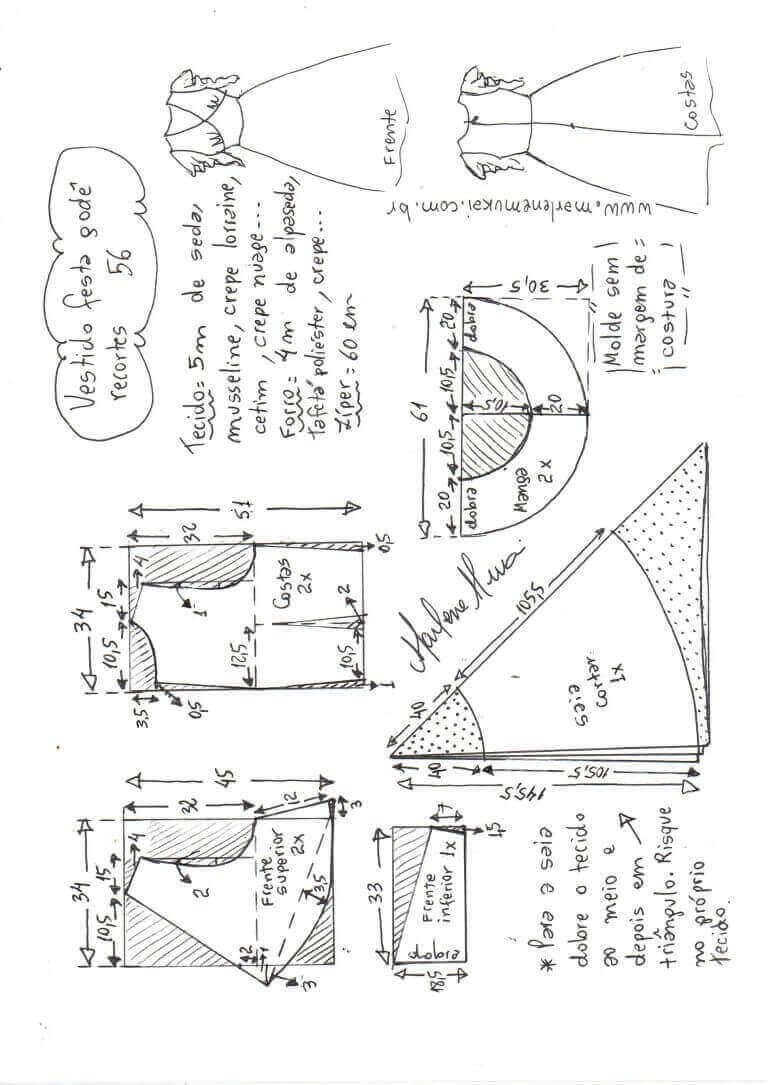 Vestido festa godê
recortes 56
Tecido = 5m de seda,
musseline, crepe lorraine,
cetim, crepe nuage...
Forro = 4 m de alpaseda,
tafetá poliéster, crepe...
Zíper = 60 cm
Frente
Costas
www.marlenemukai.com.br
34
10,5
15
4
32
45
2
Frente
superior
2x
12
3
3,5
2
1
3
34
10,5
15
4
3,5
0,5
1
32
51
Costas
2x
12,5
10,5
2
1
0,5
61
20
10,5
10,5
20
dobra
dobra
10,5
20
30,5
Manga
2x
Molde sem
margem de
costura
33
Frente
inferior 1x
dobra
18,5
7
1,5
40
105,5
40
105,5
145,5
saia
cortar
1x
Marlene Mukai
* Para a saia
dobre o tecido
ao meio e
depois em
triângulo. Risque
no próprio
tecido.